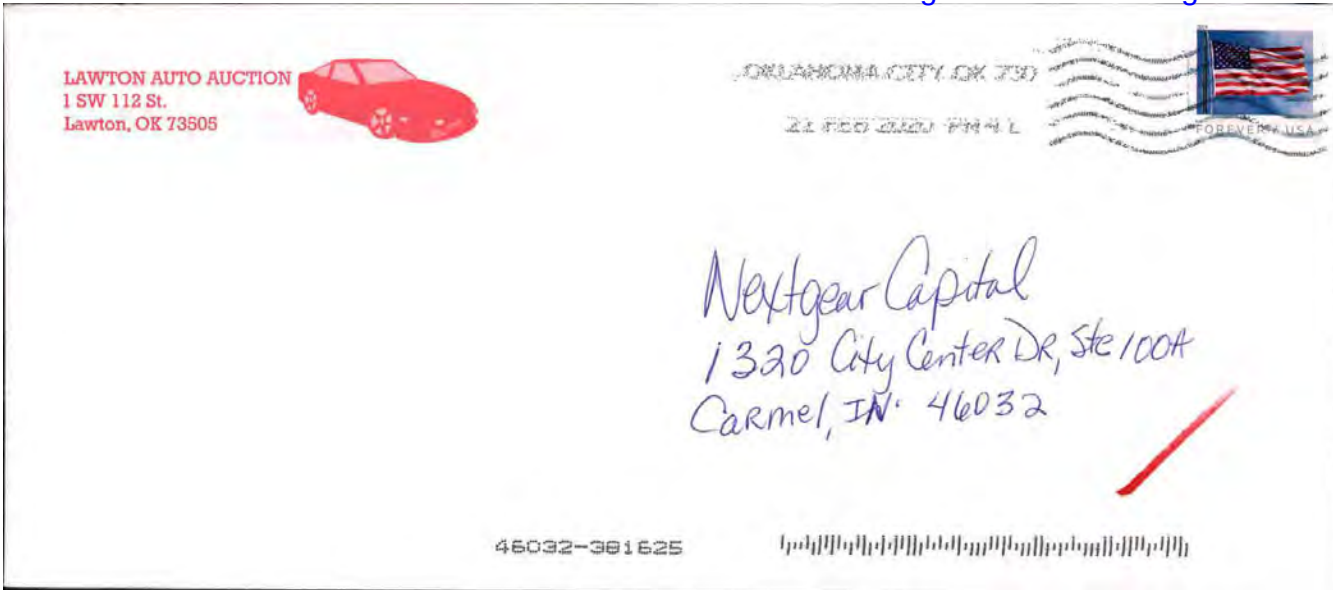 LAWTON AUTO AUCTION
1 SW 112 St.
Lawton, OK 73505
OKLAHOMA CITY OK 730
21 FEB 2020 PM 4 L
FOREVER / USA
Nextgear Capital
1320 City Center DR, Ste 100A
Carmel, IN. 46032
46032-381625